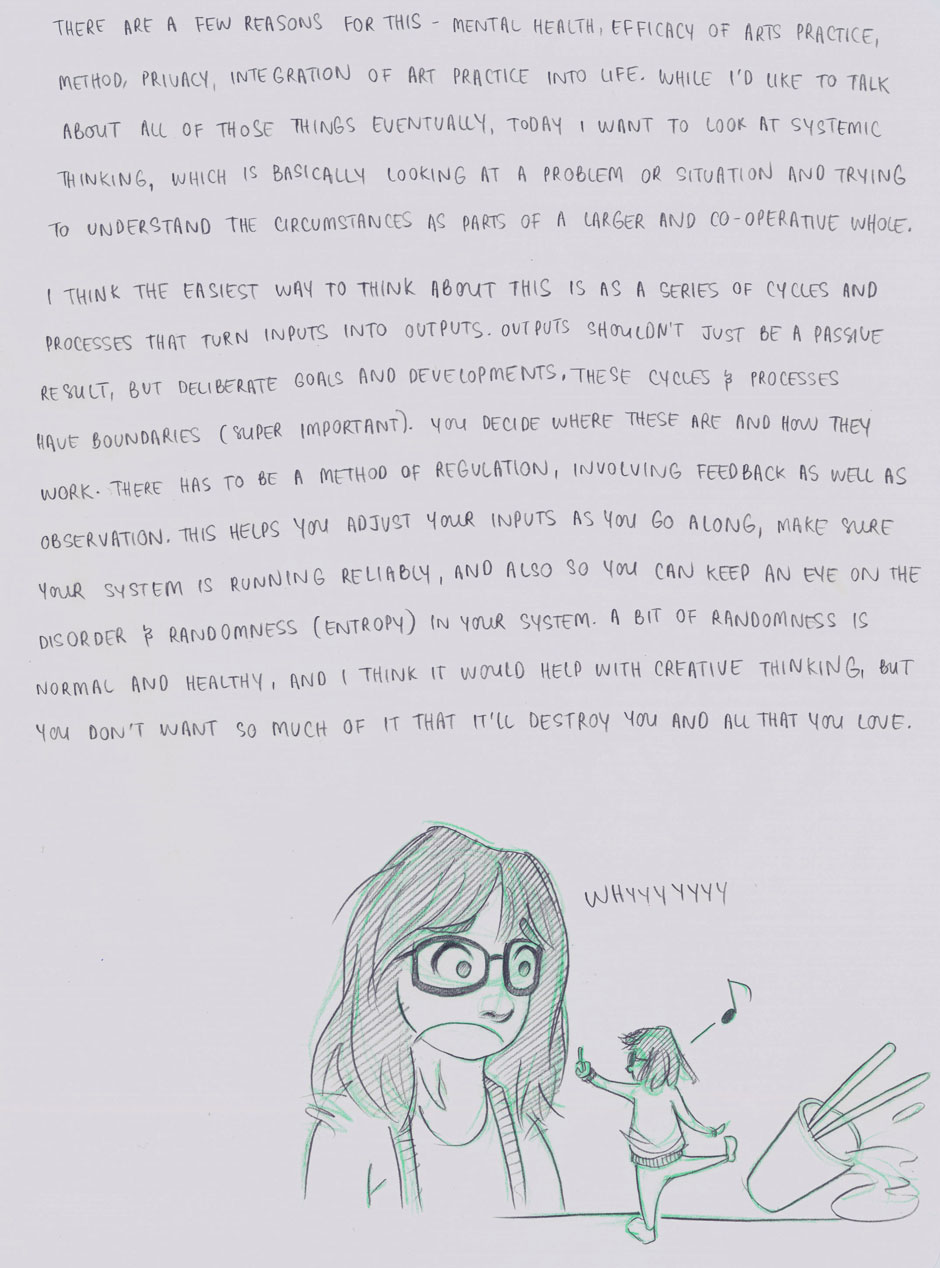 THERE ARE A FEW REASONS FOR THIS - MENTAL HEALTH, EFFICACY OF ARTS PRACTICE,
METHOD, PRIVACY, INTEGRATION OF ART PRACTICE INTO LIFE. WHILE I'D LIKE TO TALK
ABOUT ALL OF THOSE THINGS EVENTUALLY, TODAY I WANT TO LOOK AT SYSTEMIC
THINKING, WHICH IS BASICALLY LOOKING AT A PROBLEM OR SITUATION AND TRYING
TO UNDERSTAND THE CIRCUMSTANCES AS PARTS OF A LARGER AND CO-OPERATIVE WHOLE.
I THINK THE EASIEST WAY TO THINK ABOUT THIS IS AS A SERIES OF CYCLES AND
PROCESSES THAT TURN INPUTS INTO OUTPUTS. OUTPUTS SHOULDN'T JUST BE A PASSIVE
RESULT, BUT DELIBERATE GOALS AND DEVELOPMENTS. THESE CYCLES & PROCESSES
HAVE BOUNDARIES (SUPER IMPORTANT). YOU DECIDE WHERE THESE ARE AND HOW THEY
WORK. THERE HAS TO BE A METHOD OF REGULATION, INVOLVING FEEDBACK AS WELL AS
OBSERVATION. THIS HELPS YOU ADJUST YOUR INPUTS AS YOU GO ALONG, MAKE SURE
YOUR SYSTEM IS RUNNING RELIABLY, AND ALSO SO YOU CAN KEEP AN EYE ON THE
DISORDER & RANDOMNESS (ENTROPY) IN YOUR SYSTEM. A BIT OF RANDOMNESS IS
NORMAL AND HEALTHY, AND I THINK IT WOULD HELP WITH CREATIVE THINKING, BUT
YOU DON'T WANT SO MUCH OF IT THAT IT'LL DESTROY YOU AND ALL THAT YOU LOVE.
WHYYYYYYY